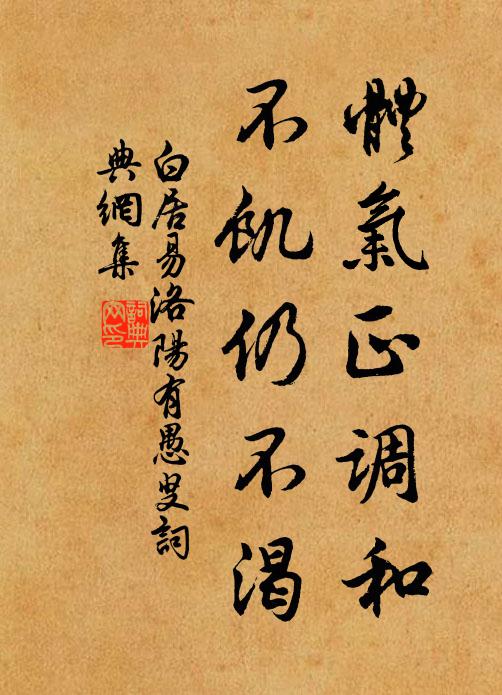 體氣正调和
不飢仍不渴
白居易洛陽有愚叟詞
典網集
詞典
网印